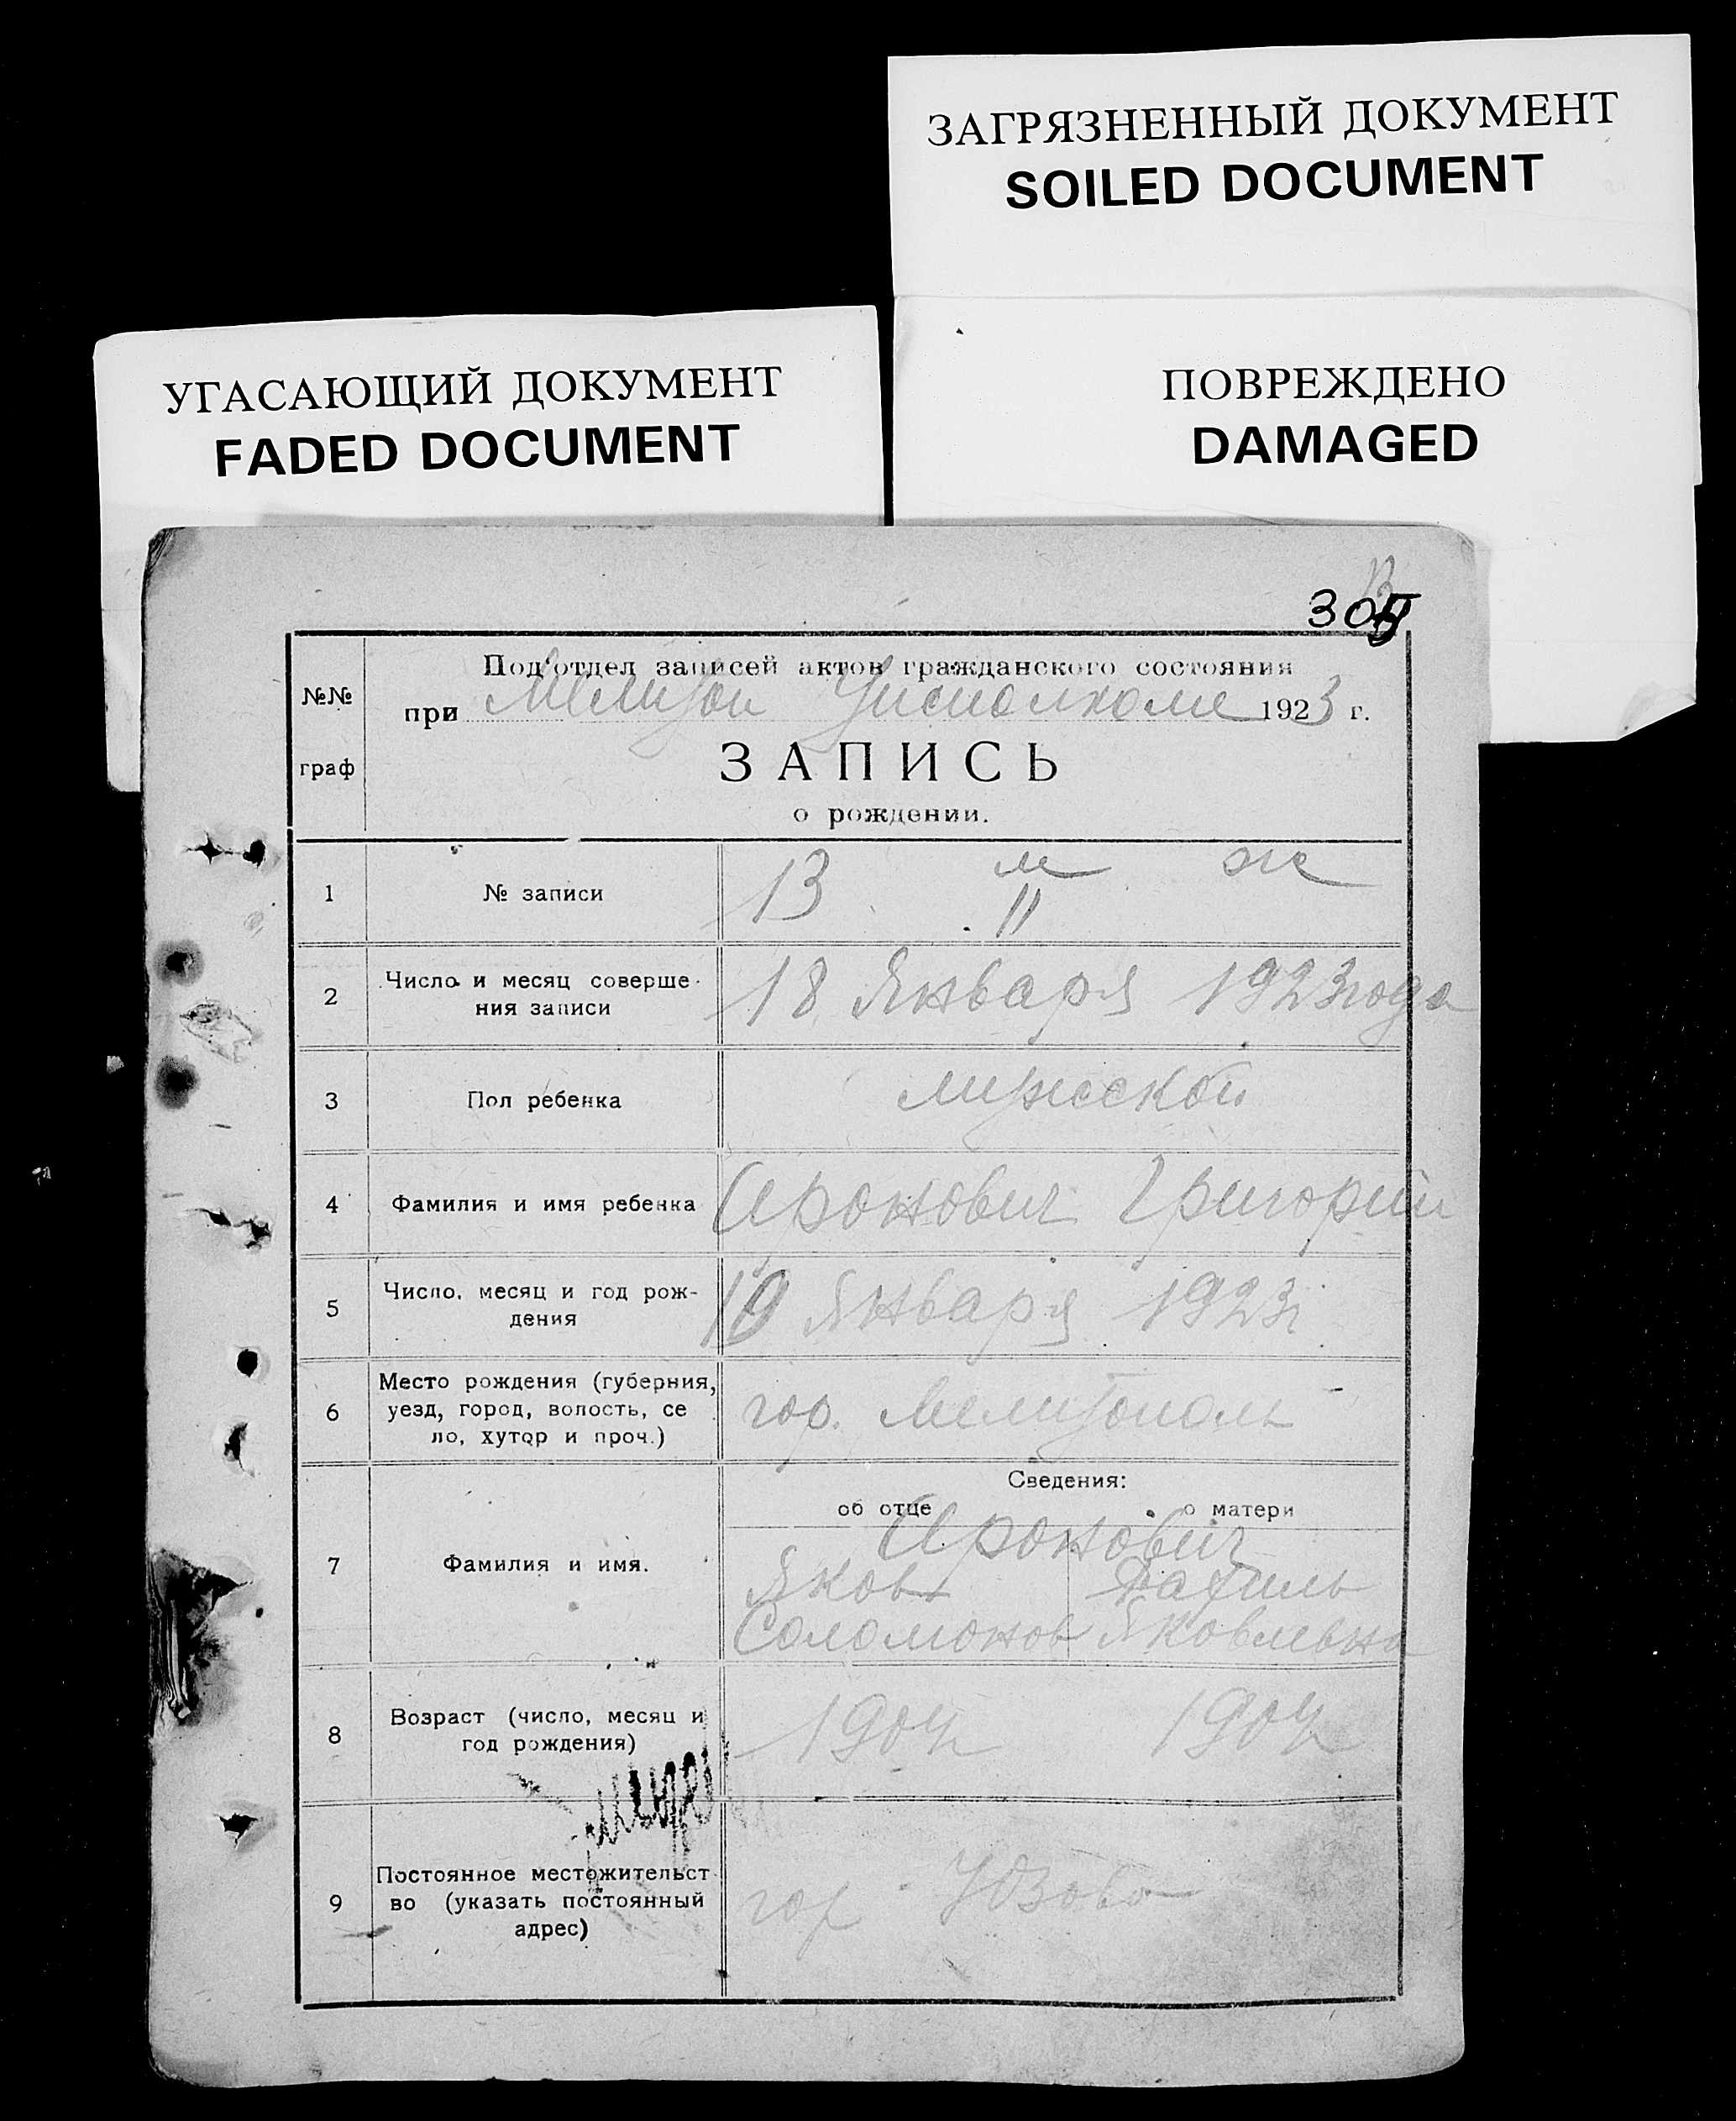 ЗАГРЯЗНЕННЫЙ ДОКУМЕНТ
SOILED DOCUMENT
УГАСАЮЩИЙ ДОКУМЕНТ
FADED DOCUMENT
ПОВРЕЖДЕНО
DAMAGED
13
№№ граф
Под'отдел записей актов гражданского состояния
при Мелитоп Уисполкоме 1923 г.
ЗАПИСЬ
о рождении.
1 № записи 13 м ж
11
2 Число и месяц соверше-
ния записи 18 Января 1923 года
3 Пол ребенка мужской
4 Фамилия и имя ребенка Аронович Григорий
5 Число, месяц и год рож-
дения Января 1923 г
6 Место рождения (губерния,
уезд, город, волость, се
ло, хутор и проч.) гор. Мелитополь
Сведения:
об отце о матери
Аронович
7 Фамилия и имя. Яков Рахиль
Соломонов Яковлевна
8 Возраст (число, месяц и
год рождения) 1904 1904
9 Постоянное местожительст
во (указать постоянный
адрес) гор Юзово